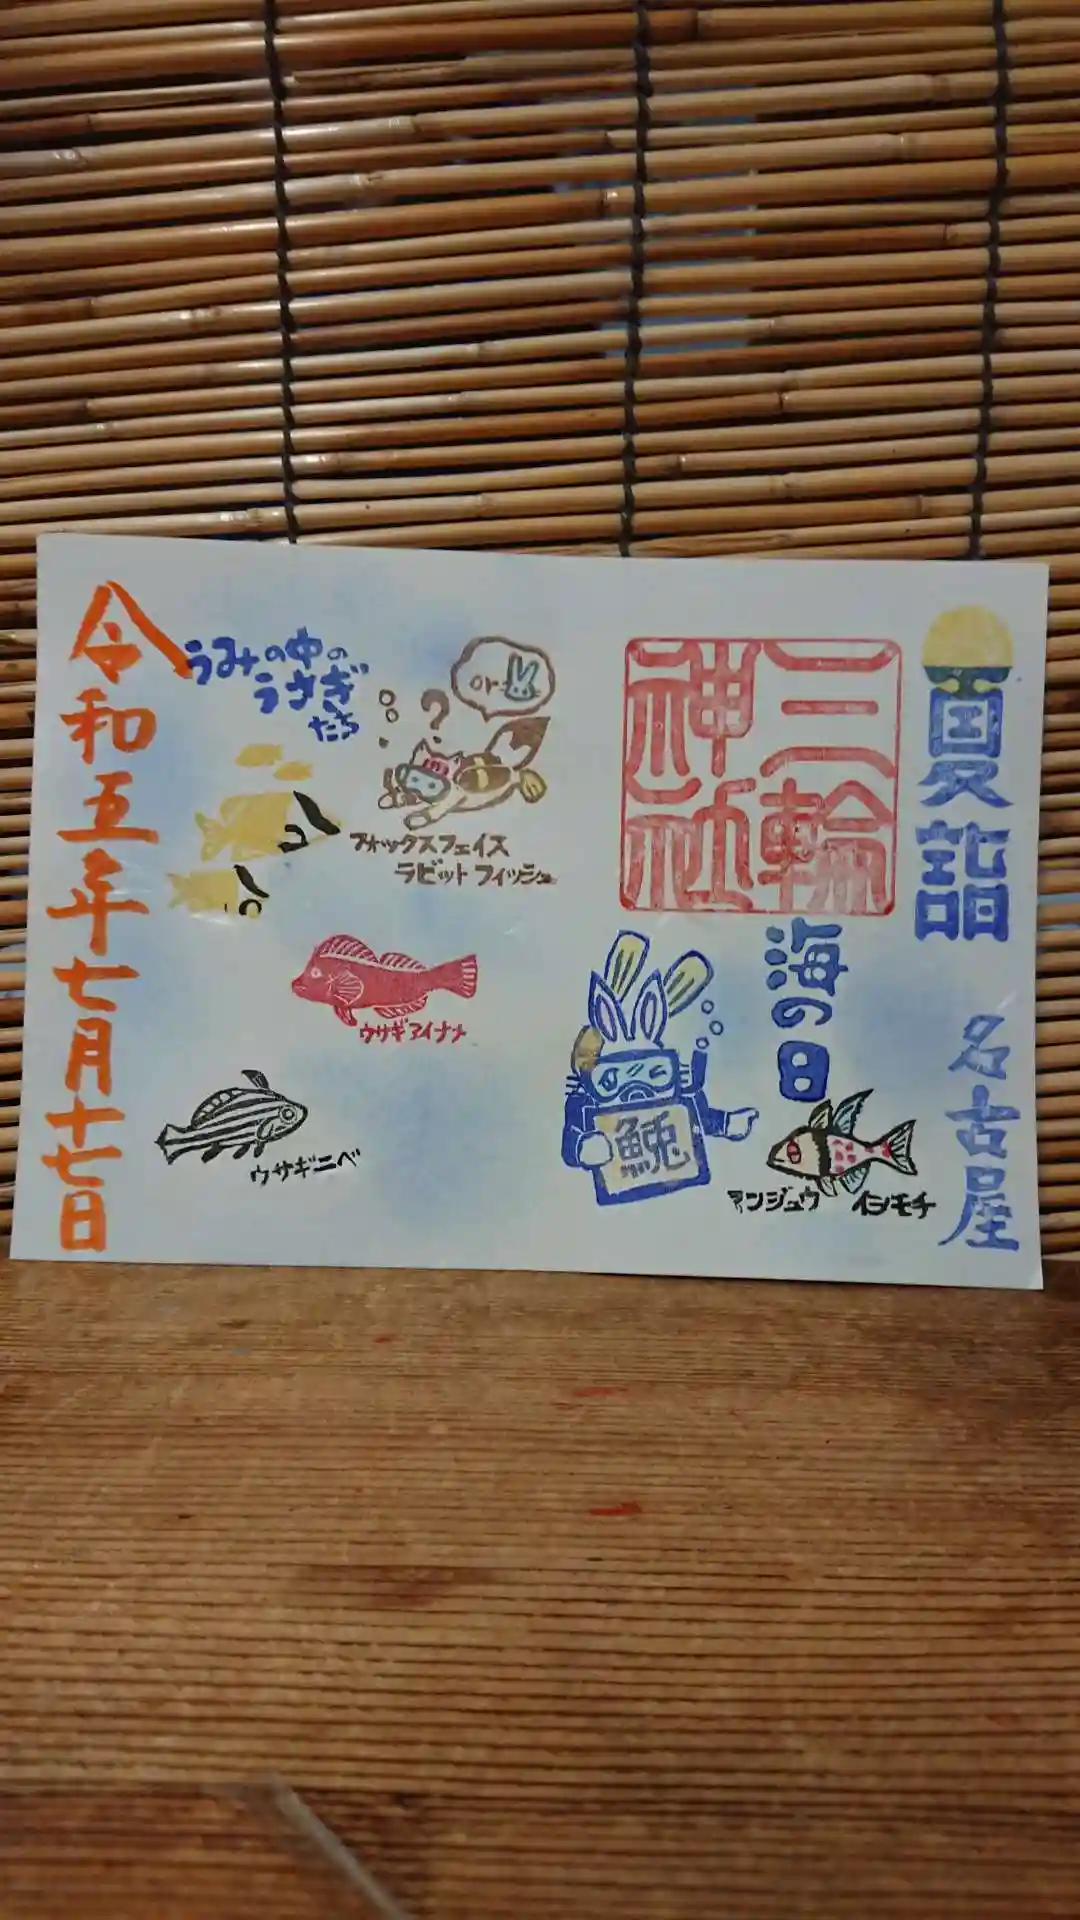 夏詣
名古屋
三輪
神社
海の日
鮸
マンジュウ イシモチ
or
?
うみの中の
うさぎ
たち
フォックスフェイス
ラビットフィッシュ
ウサギアイナメ
ウサギニベ
令和五年七月十七日